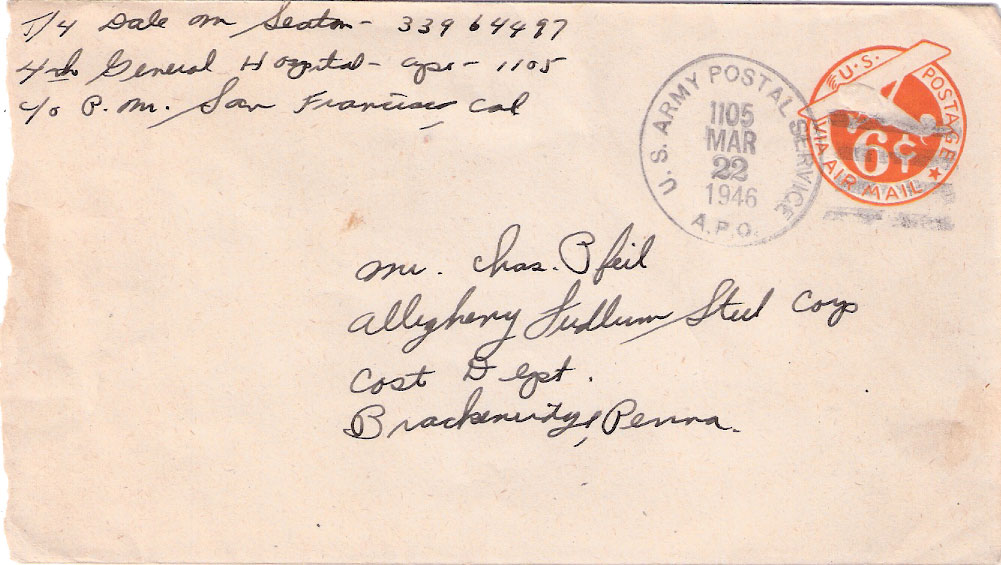 T/4 Dale M Seaton - 339 64497
4th General Hospital - apo - 1105
c/o P.M. San Francisco, Cal
U.S. ARMY POSTAL SERVICE
1105
MAR
22
1946
A.P.O.
U.S. POSTAGE
6¢
VIA AIR MAIL
Mr. Chas. Pfeil
Allegheny Ludlum Steel Corp
Cost Dept.
Brackenridge, Penna.